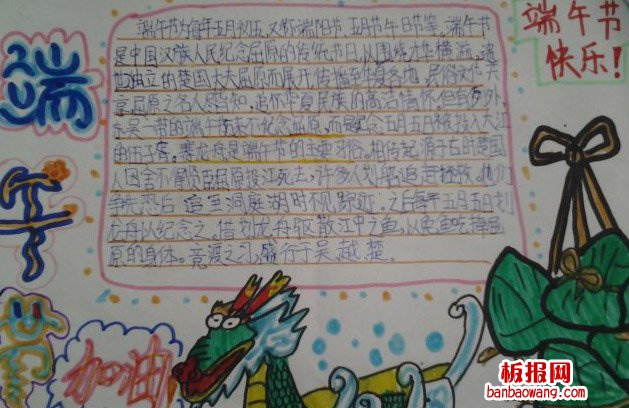 端午节
端午节
快乐!
端午节为每年五月初五,又称端阳节、五月节午日节等。端午节
是中国汉族人民纪念屈原的传统节日,以围绕才华横溢、遗
世独立的楚国大夫屈原而展开,传播至华夏各地,民俗文化共
享,屈原之名人尽皆知,追怀华夏民族的高洁情怀。但有例外,
东吴一带的端午节历来不纪念屈原,而是纪念五月五日被投入大江
的伍子胥。赛龙舟是端午节的主要习俗。相传起源于古时楚国
人因舍不得贤臣屈原投江死去,许多人划船追赶拯救。他们
争先恐后,追至洞庭湖时不见踪迹。之后每年五月五日划
龙舟以纪念之。借划龙舟驱散江中之鱼,以免鱼吃掉屈
原的身体。竞渡之习,盛行于吴、越、楚。
加油
板报网
banbaowang.com